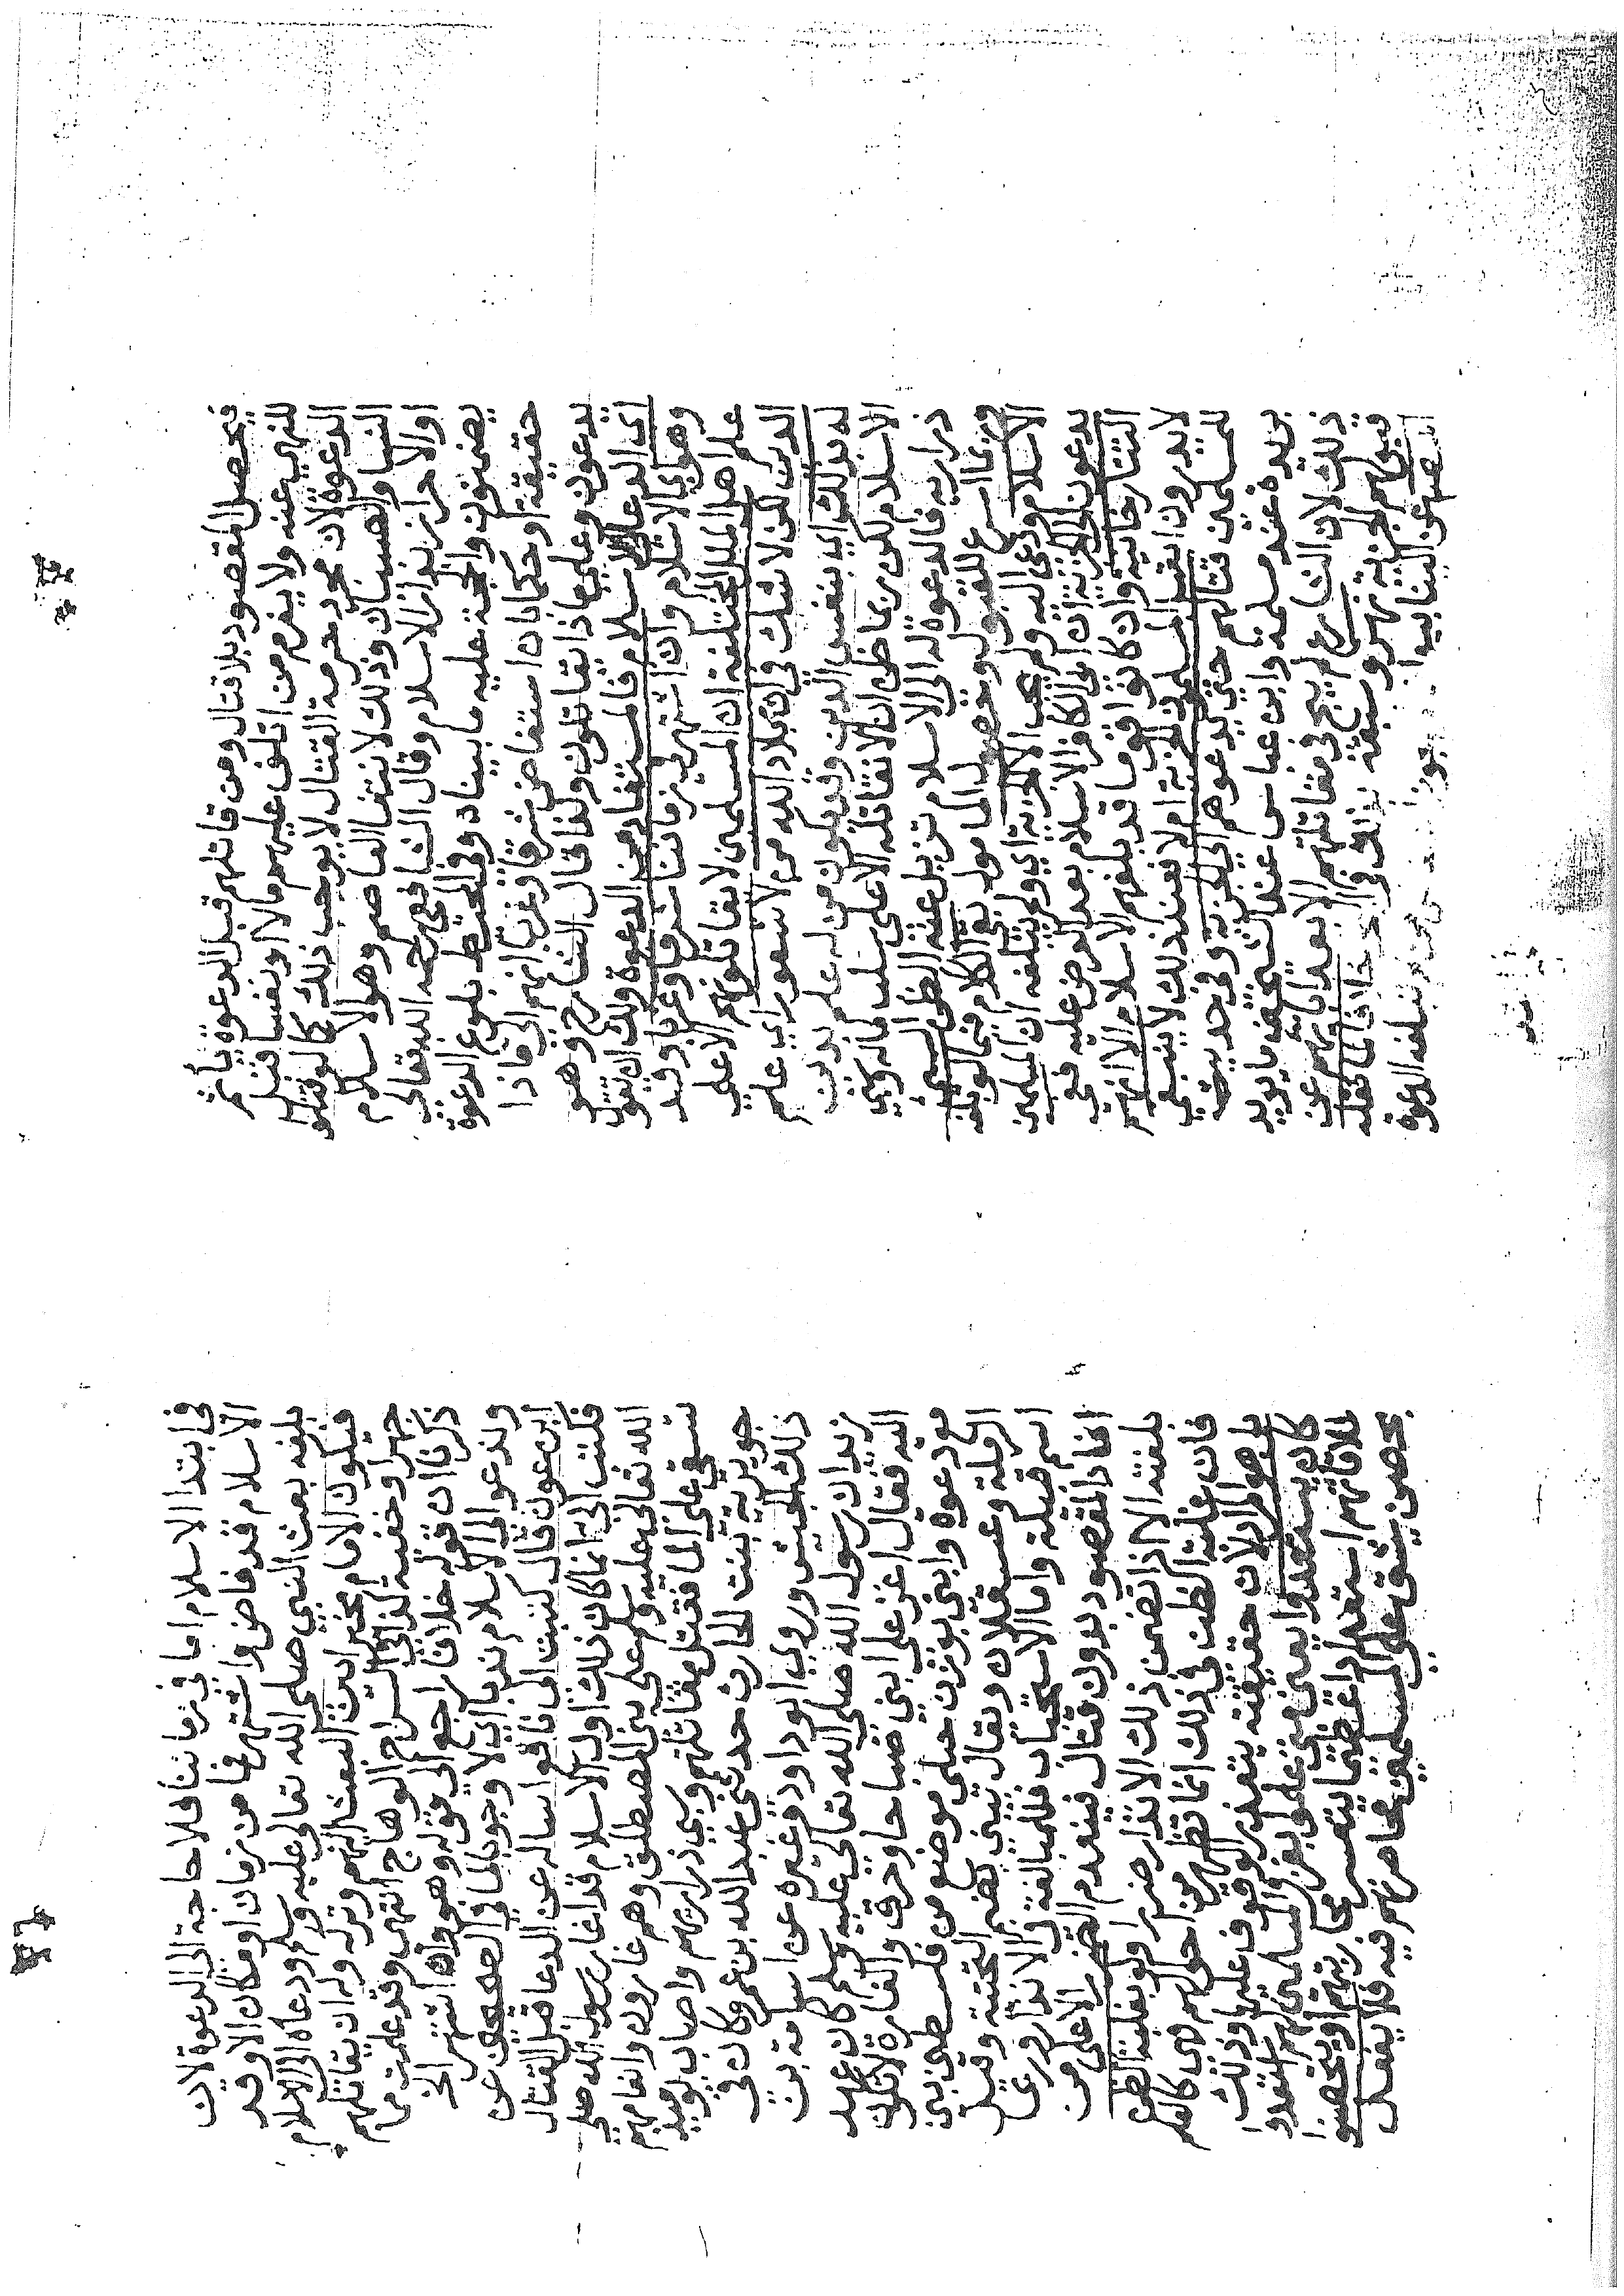 فيحصل المقصود بلا قتال ومن قاتلهم قبل الدعوة يأثم
للنهي عنه ولا يغرم من اتلف عليهم مالا او نفسا قبل
الدعوة لان مجرد حرمة القتال لا يوجب ذلك كما لو قتلوا
النسا والصبيان وذلك لانتفا العاصم وهو الاسلام
او الاحراز بدار الاسلام وقال الشافعي رحمه الله تعالى
يضمنون والحجة عليه ما بيناه وفي المحيط بلوغ الدعوة
حقيقة او حكما بان استفاض شرقا وغربا انهم الى ماذا
يدعون وعلى ماذا يقاتلون ولذا قال الشارح وهو
اي الدعا الى الاسلام فالمستفاد من الدعوة ولك ان تقول
وهو اي الاسلام وان اشتهر في زماننا شرقا وغربا وقد
علم اهل الملل المختلفة ان المسلمين لا يقاتلونهم الا على
الدين لكن لا شك في ان بلاد الله من لا شعور اي علم
له بذلك اي بنفس الدين وقد يكون من له علم بدين
الاسلام لكن ربما ظن ان لا نقاتله الا على سلب ماله وسبي
ذراريه فالدعوة له الى الاسلام تزيل عنه الظن السيء
وربما اسرع للقبول وحصل المامول بقي الكلام فيما لو بلغه
الاسلام ودعى اليه ولم يجب الا الجزية اي ولم يبلغه ان المسلمين
يدعون الى الجزية ان ابى الكافر الاسلام بعد العرض عليه ففي
التتارخانية وان كانوا قوما قد بلغهم الاسلام الا انهم
لا يدرون ايقبل المسلمون الجزية ام لا فعند ذلك لا ينبغي
للمسلمين قتالهم حتى يدعوهم الى الجزية وفي حديث
بريدة عند مسلم وابن عباس عند الشيخين ما يويد
ذلك لان الشارع لم يبح في مقاتلتهم الا بعد ابائهم عن
قبولهم الجزية نهر وسبقه لذلك في خلاف لما نقله
المصنف عن الينابيع يجوز تبلغه الدعوة
في ابتدا الاسلام اما في زماننا فلا حاجة الى الدعوة لان
الاسلام قد فاض واشتهر فما من زمان او مكان الا وقد
بلغه بعث النبي صلى الله تعالى عليه وسلم ودعاه الى الاسلام
فيكون الامام مخيرا بين البعث اليهم وتركه وله ان يقاتلهم
جهرا وخفية كذا في السراج الوهاج انتهى وقد علمت مما
ذكرنا ان قوله خلافا راجع الى قوله وهو وان اشتهر الخ
وندعو الى الاسلام ندبا اي لا وجوبا لما في الصحيحين عن
ابن عون قال كتبت الى نافع اساله عن الدعا قبل القتال
فكتب الي انما كان ذلك اول الاسلام قد اغار رسول الله صلى
الله تعالى عليه وسلم على بني المصطلق وهم غارون وانعامهم
تسقى على الما فقتل مقاتلتهم وسبى ذراريهم واصاب يوميذ
جويرية بنت الحارث حدثني عبد الله بن عمر وكان في
ذلك الجيش وروى ابو داود وغيره عن اسامة بن
زيد ان رسول الله صلى الله تعالى عليه وسلم كان عهد
اليه فقال اغر على ابني صباحا وحرق والغارة لا تكون
مع دعوة وابنى بوزن حبلى موضع من فلسطين بين
الرملة وعسقلان ويقال يبنى بضم التحتية وقيل
اسم قبيلة واما الاستحباب فللمبالغة في الانذار وربما
افاد المقصود بدون قتال فينعدم الضرر الاعلى من
بلغته الا اذا تضمن ذلك الانذار ضررا ولو بغلبة الظن
فان غلبة الظن في ذلك انما تظهر من احوالهم هي كالعلم
بل هو المراد لان حقيقته يتعذر الوقوف عليها وذلك
كان يستعدوا يعنى متى علموا بغزو المسلمين لهم استعدوا
لملاقاتهم استعدادا عظيما يتعسر محاربتهم او يتحصنوا
بحصن يشق على المسلمين محاصرتهم فيه فلا يفعل